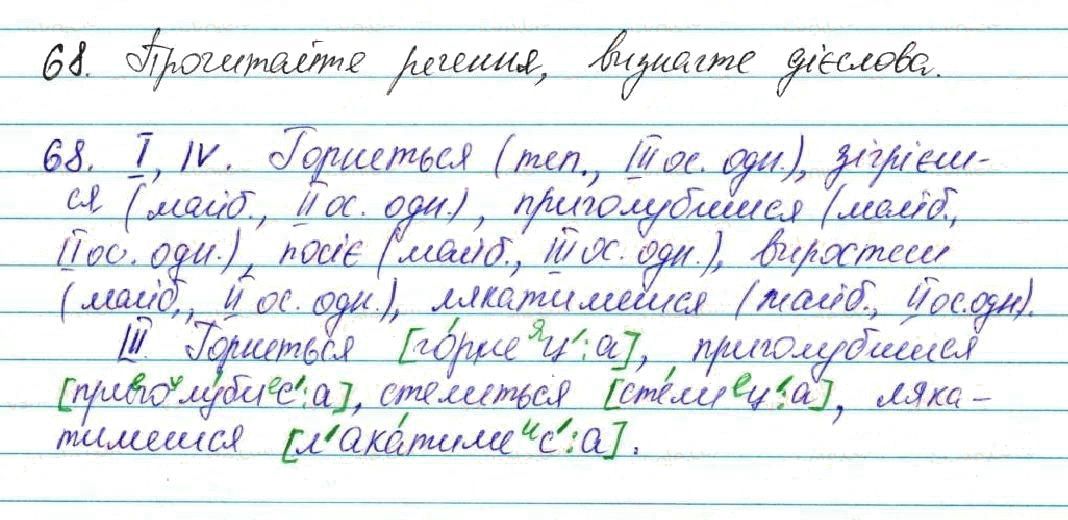 68. Прочитайте речення, визначте дієслова.
68. I, IV. Горнеться (теп., III ос. одн.), зігрієш-
ся (майб., II ос. одн.), приголубишся (майб.,
II ос. одн.), посіє (майб., III ос. одн.), виростеш
(майб., II ос. одн.), лякатимешся (майб., II ос. одн).
III. Горнеться [го́рнеиц':а], приголубишся
[приеголу́биес':а], стелиться [сте́лиец':а], ляка-
тимешся [л'ака́тимеис':а].